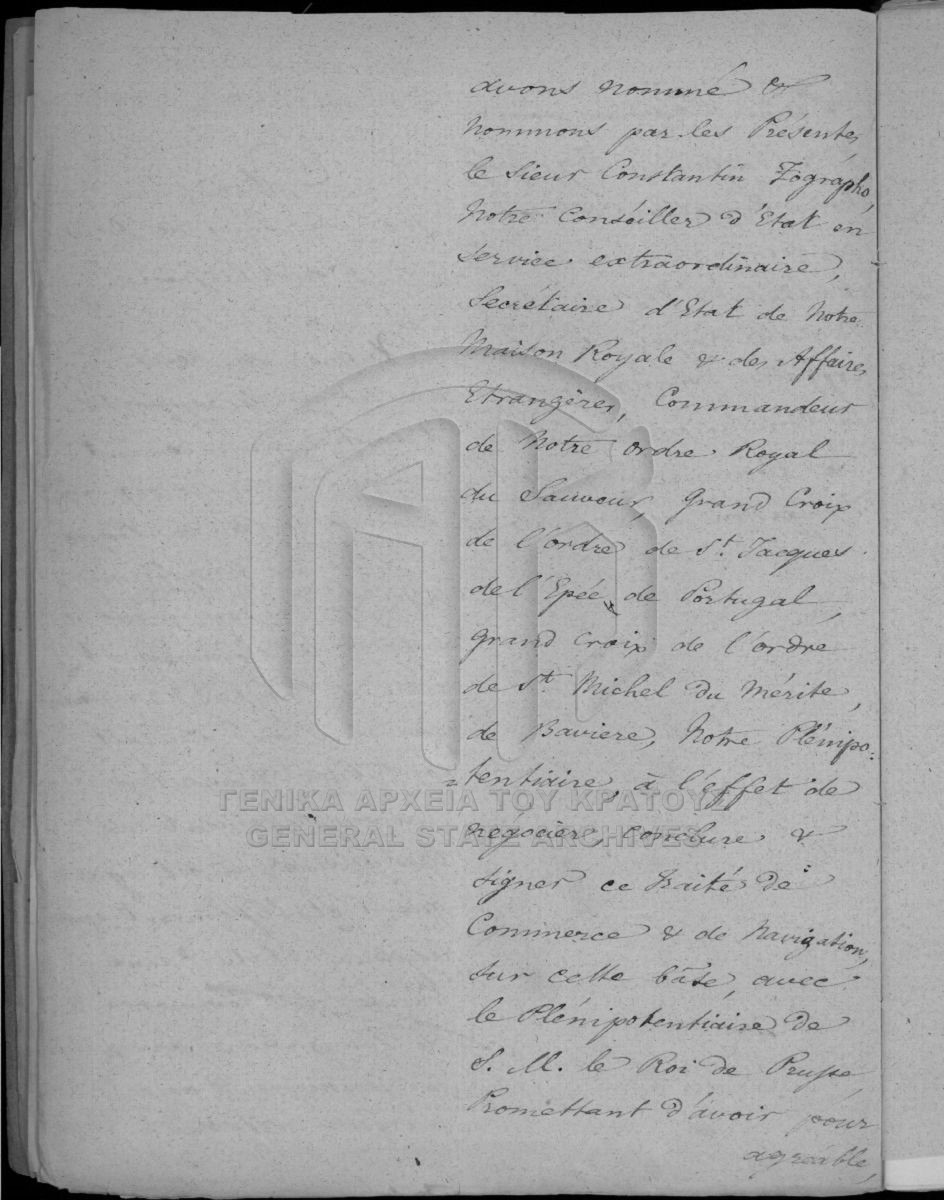 avons nommé &
nommons par les Présentes
le Sieur Constantin Zographo,
Notre Conseiller d'Etat en
service extraordinaire,
Secrétaire d'Etat de Notre
Maison Royale & des Affaires
Etrangères, Commandeur
de Notre ordre Royal
du Sauveur, Grand Croix
de l'ordre de St. Jacques
de l'Epée de Portugal,
Grand Croix de l'ordre
de St. Michel du Mérite,
de Baviere, Notre Plénipo=
=tentiaire, à l'effet de
négocier, conclure &
signer ce Traité de
Commerce & de Navigation,
sur cette bâse, avec
le Plénipotentiaire de
S. M. le Roi de Prusse,
Promettant d'avoir pour
agréable,
ΓΕΝΙΚΑ ΑΡΧΕΙΑ ΤΟΥ ΚΡΑΤΟΥΣ
GENERAL STATE ARCHIVES